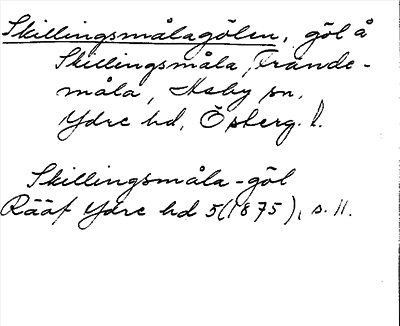 Skillingsmålagölen, göl å
Skillingsmåla, Frande-
måla, Asby sn,
Ydre hd, Österg. l.
Skillingsmåla-göl
Rääf Ydre hd 5(1875), s. 11.